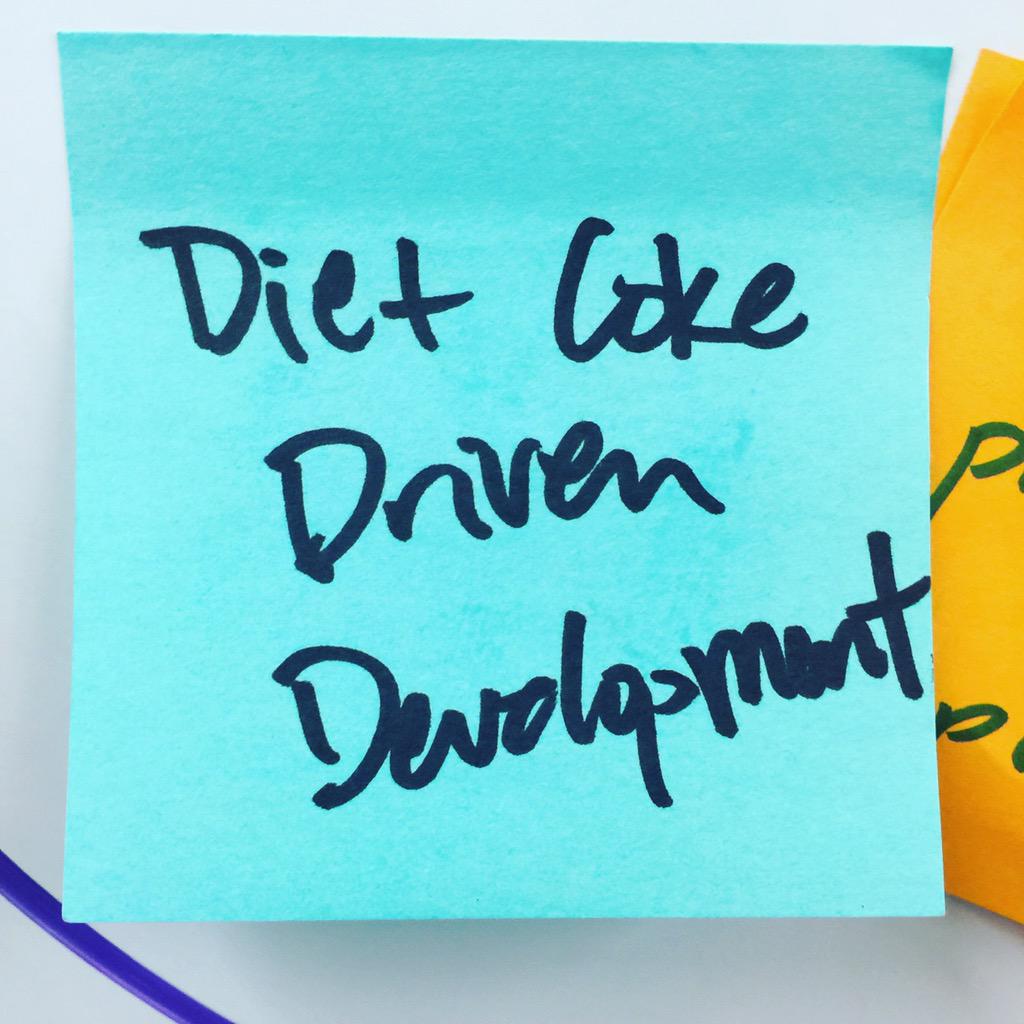 Diet Coke
Driven
Development